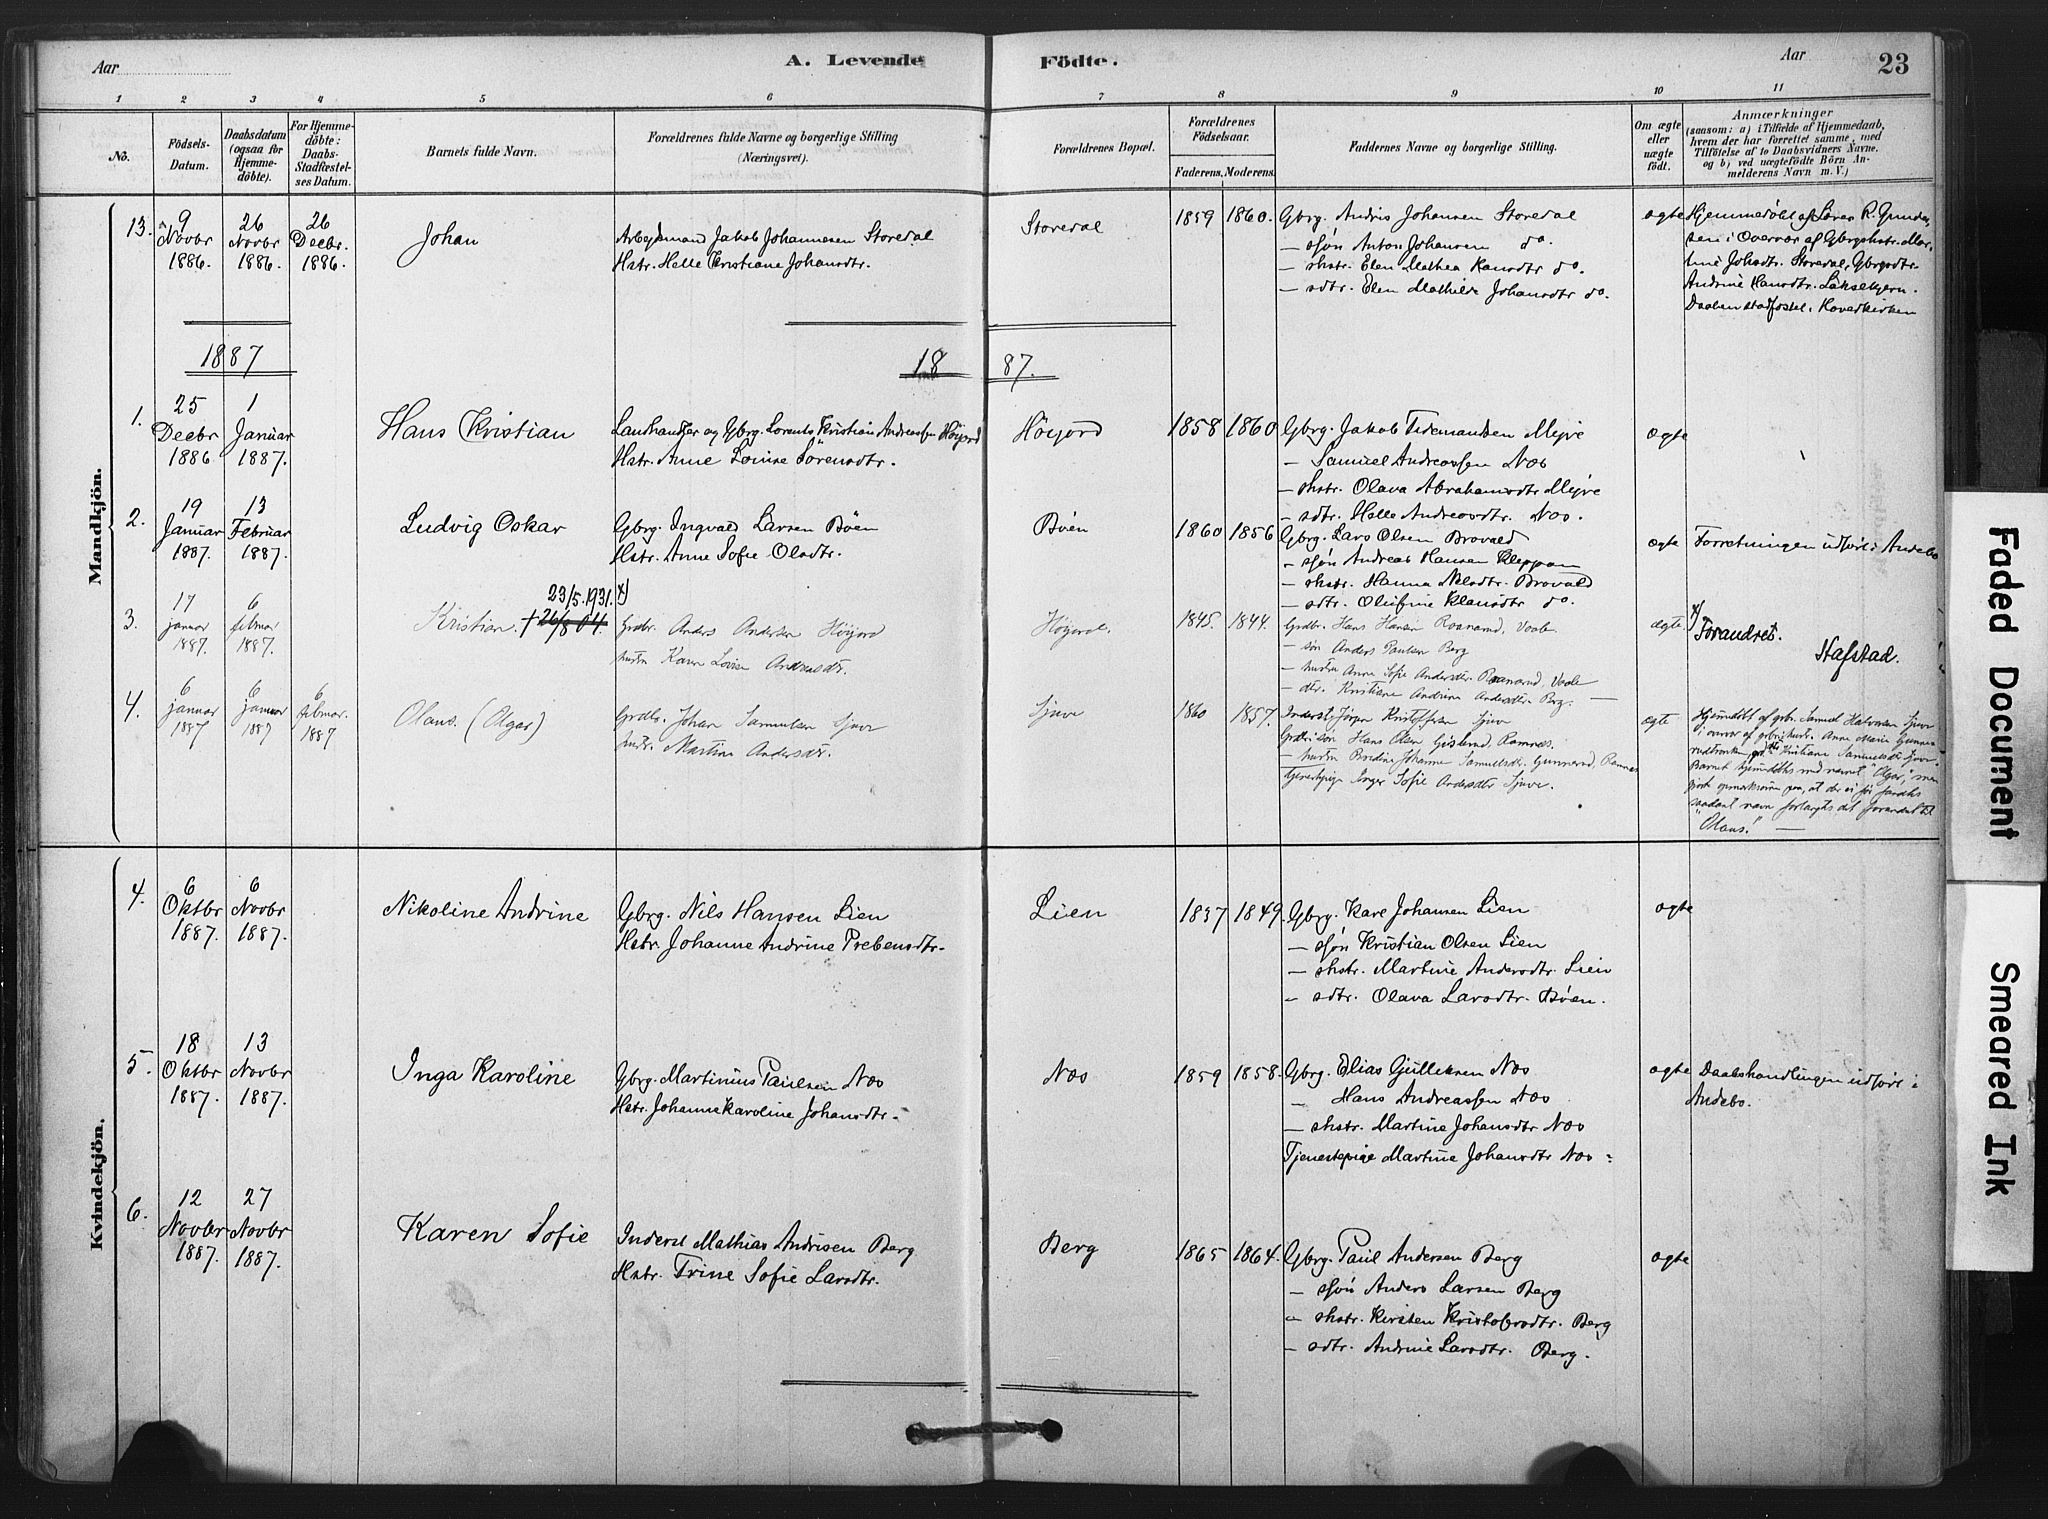 Aar
A. Levende Födte.
Aar
23
1 2 3 4 5 6 7 8 9 10 11
No.
Födsels-Datum.
Daabsdatum (ogsaa for Hjemme-döbte).
For Hjemme-döbte: Daabs-Stadfæstel-ses Datum.
Barnets fulde Navn.
Forældrenes fulde Navne og borgerlige Stilling (Næringsvei).
Forældrenes Bopæl.
Forældrenes Födselsaar.
Faderens. Moderens.
Faddernes Navne og borgerlige Stilling.
Om ægte eller uægte födt.
Anmærkninger
(saasom: a) i Tilfælde af Hjemmedaab,
hvem der har forrettet samme, med
Tilföielse af to Daabsvidners Navne.
og b) ved uægtefödte Börn An-
melderens Navn m. V.)
Mandkjön.
13. 9 Novbr 1886. 26 Novbr 1886. 26 Decbr. 1886.
Johan
Arbejdsmand Jakob Johannesen Storedal
Hstr. Helle Kristiane Johansdtr.
Storedal
1859 1860.
Gbrg. Andris Johansen Storedal
— ssøn Anton Johansen do.
— shstr. Elen Mathea Hansdtr do.
— sdtr. Elen Mathilde Johansdtr do.
ægte
Hjemmedöbt af Lærer R. Gunder-
sen i Overvær af Gbrgshstr. Mar-
tine Johsdtr. Storedal, Gbrgsdtr.
Andrine Hansdtr. Lakselyern.
Daaben stadfæstet i Hovedkirken
1887
1887.
1. 25 Decbr 1886 1 Januar 1887.
Hans Kristian
Landhandler og Gbrg. Lorents Kristian Andreassen Höyjord
Hstr. Anne Lovise Sörensdtr.
Höyjord
1858 1860
Gbrg. Jakob Tidemandsen Mejre
— Samuel Andreassen Næs
— shstr. Olava Abrahamsdtr Mejre
— sdtr. Helle Andreasdtr. Næs.
ægte
2. 19 Januar 1887. 13 Februar 1887.
Ludvig Oskar
Gbrg. Ingvald Larsen Böen
Hstr. Anne Sofie Olsdtr.
Böen
1860 1856
Gbrg. Lars Olsen Brovald
— sjön Andreas Hansen Kleppan
— shstr. Hanna Nilsdtr. Brovald
— sdtr. Olufine Klausdtr do.
ægte
Forretningen udført i Andebo
3. 17 januar 1887. 6 februar 1887.
Kristian. † 26/8 04. 23/5.1931. x)
Grdbr. Anders Andersen Höyjord
hustru Karen Lovise Andreasdtr.
Höyjord.
1845. 1844.
Grdbr. Hans Hansen Rosnærød, Vaale
— søn Anders Paulsen Berg
— hustru Anne Sofie Andersdtr. Rosnærød, Vaale
— dtr. Kristiane Andrine Andersdtr. Berg.
ægte
x) Forandret.
Stafstad.
4. 6 januar 1887 6 januar 1887 6 februar. 1887
Olaus. (Olgar)
Grdbr. Johan Samuelsen Sjuve
hustr. Martine Andersdtr.
Sjuve
1860 1857.
Inderst Jörgen Kristoffersen Sjuve
Grdbr. søn Hans Olsen Gislerød, Ramnes.
— hustru Bredine Johanne Samuelsdtr. Gunnerød, Ramnes
Tjenestepige Inger Sofie Andersdtr Sjuve.
ægte
Hjemmedöbt af grbr. Samuel Halvorsen Sjuve
i overvær af grbrs hustr. Anne Marie Gunne-
rødtraaken, grd. dtr Kristiane Samuelsdtr Sjuve.
Barnet hjemdöbtes med navnet "Olgar", men
gjort opmærksom paa, at der ei før fandtes
saadant navn forlangtes det forandret til
"Olaus." —
Kvindekjön.
4. 6 Oktbr 1887. 6 Novbr 1887.
Nikoline Andrine
Gbrg. Nils Hansen Lien
Hstr. Johanne Andrine Prebensdtr.
Lien
1837 1849.
Gbrg. Karl Johansen Lien
— sjön Kristian Olsen Lien
— shstr. Martine Andersdtr. Lien
— sdtr. Olava Larsdtr. Böen.
ægte
5. 18 Oktbr 1887. 13 Novbr 1887.
Inga Karoline
Gbrg. Martinius Paulsen Næs
Hstr. Johanne Karoline Johansdtr.
Næs
1859 1858.
Gbrg. Elias Gulliksen Næs
— Hans Andreassen Næs
— shstr. Martine Johansdtr Næs
Tjenestepige Martine Johansdtr Næs
ægte
Daabshandlingen udført i
Andebo.
6. 12 Novbr 1887. 27 Novbr 1887.
Karen Sofie
Inderst Mathias Andrisen Berg
Hstr. Trine Sofie Larsdtr.
Berg
1865 1864.
Gbrg. Paul Andersen Berg
— sjön Anders Larsen Berg
— shstr. Kirsten Kristofersdtr. Berg
— sdtr. Andrine Larsdtr. Berg.
ægte
Faded Document
Smeared Ink